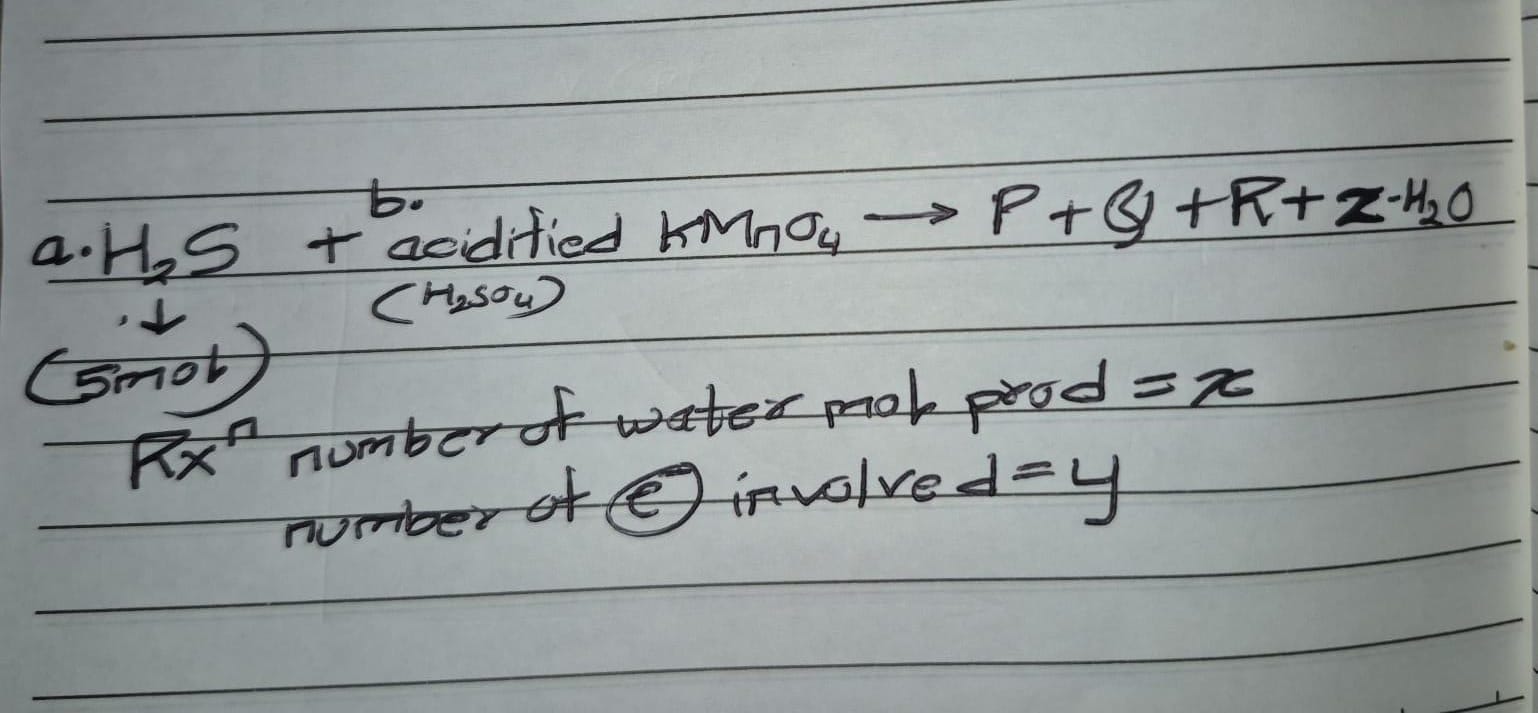 b.
a.H₂S + acidified KMnO₄ → P + Q + R + z-H₂O
↓ (H₂SO₄)
(5mol)
Rxⁿ number of water mol prod = x
number of e⁻ involved = y